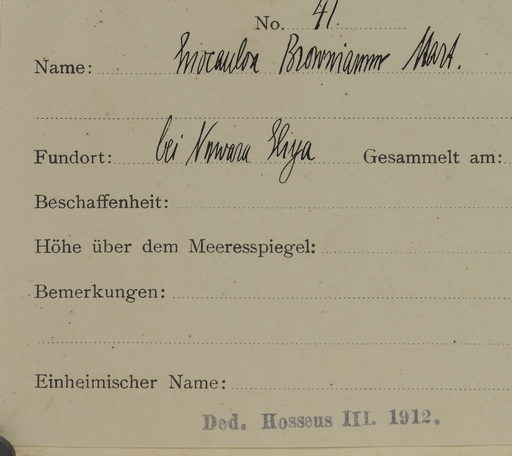 No. 41.
Name: Eriocaulon Brownianum Mart.
Fundort: bei Nuwara Eliya Gesammelt am:
Beschaffenheit:
Höhe über dem Meeresspiegel:
Bemerkungen:
Einheimischer Name:
Ded. Hosseus III. 1912.